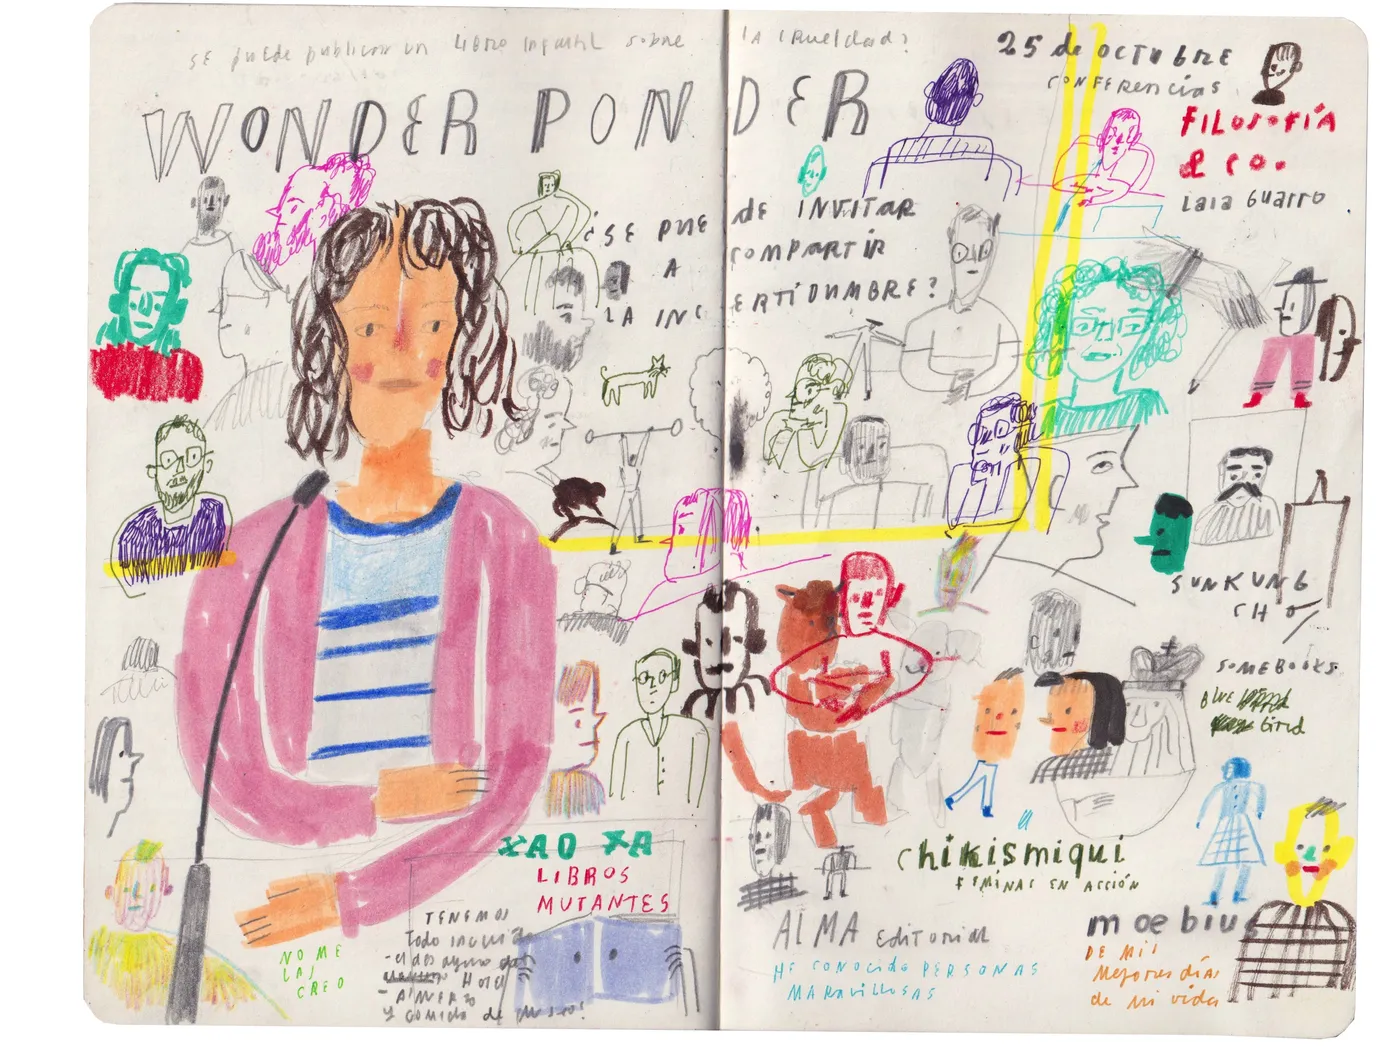 SE puede publicar un LIBRO Infantil sobre LA CRUELDAD?
WONDER PONDER
25 de OCTUBRE
CONFERENCIAS
FILOSOFÍA
& CO.
Laia Guarro
¿SE PUEDE INVITAR
A COMPARTIR
LA INCERTIDUMBRE?
SUNKUNG
CHO
SOMEBOOKS
BLUE
Bird
XAO XA
LIBROS
MUTANTES
chikismiqui
FEMINAS EN ACCIÓN
TENEMOS
Todo incluido
- el desayuno del
HOTEL
- ALMERZO
y comida de museo!
NO ME
LAS
CREO
ALMA Editorial
HE CONOCIDO PERSONAS
MARAVILLOSAS
moebius
DE MIS
Mejores días
de mi vida